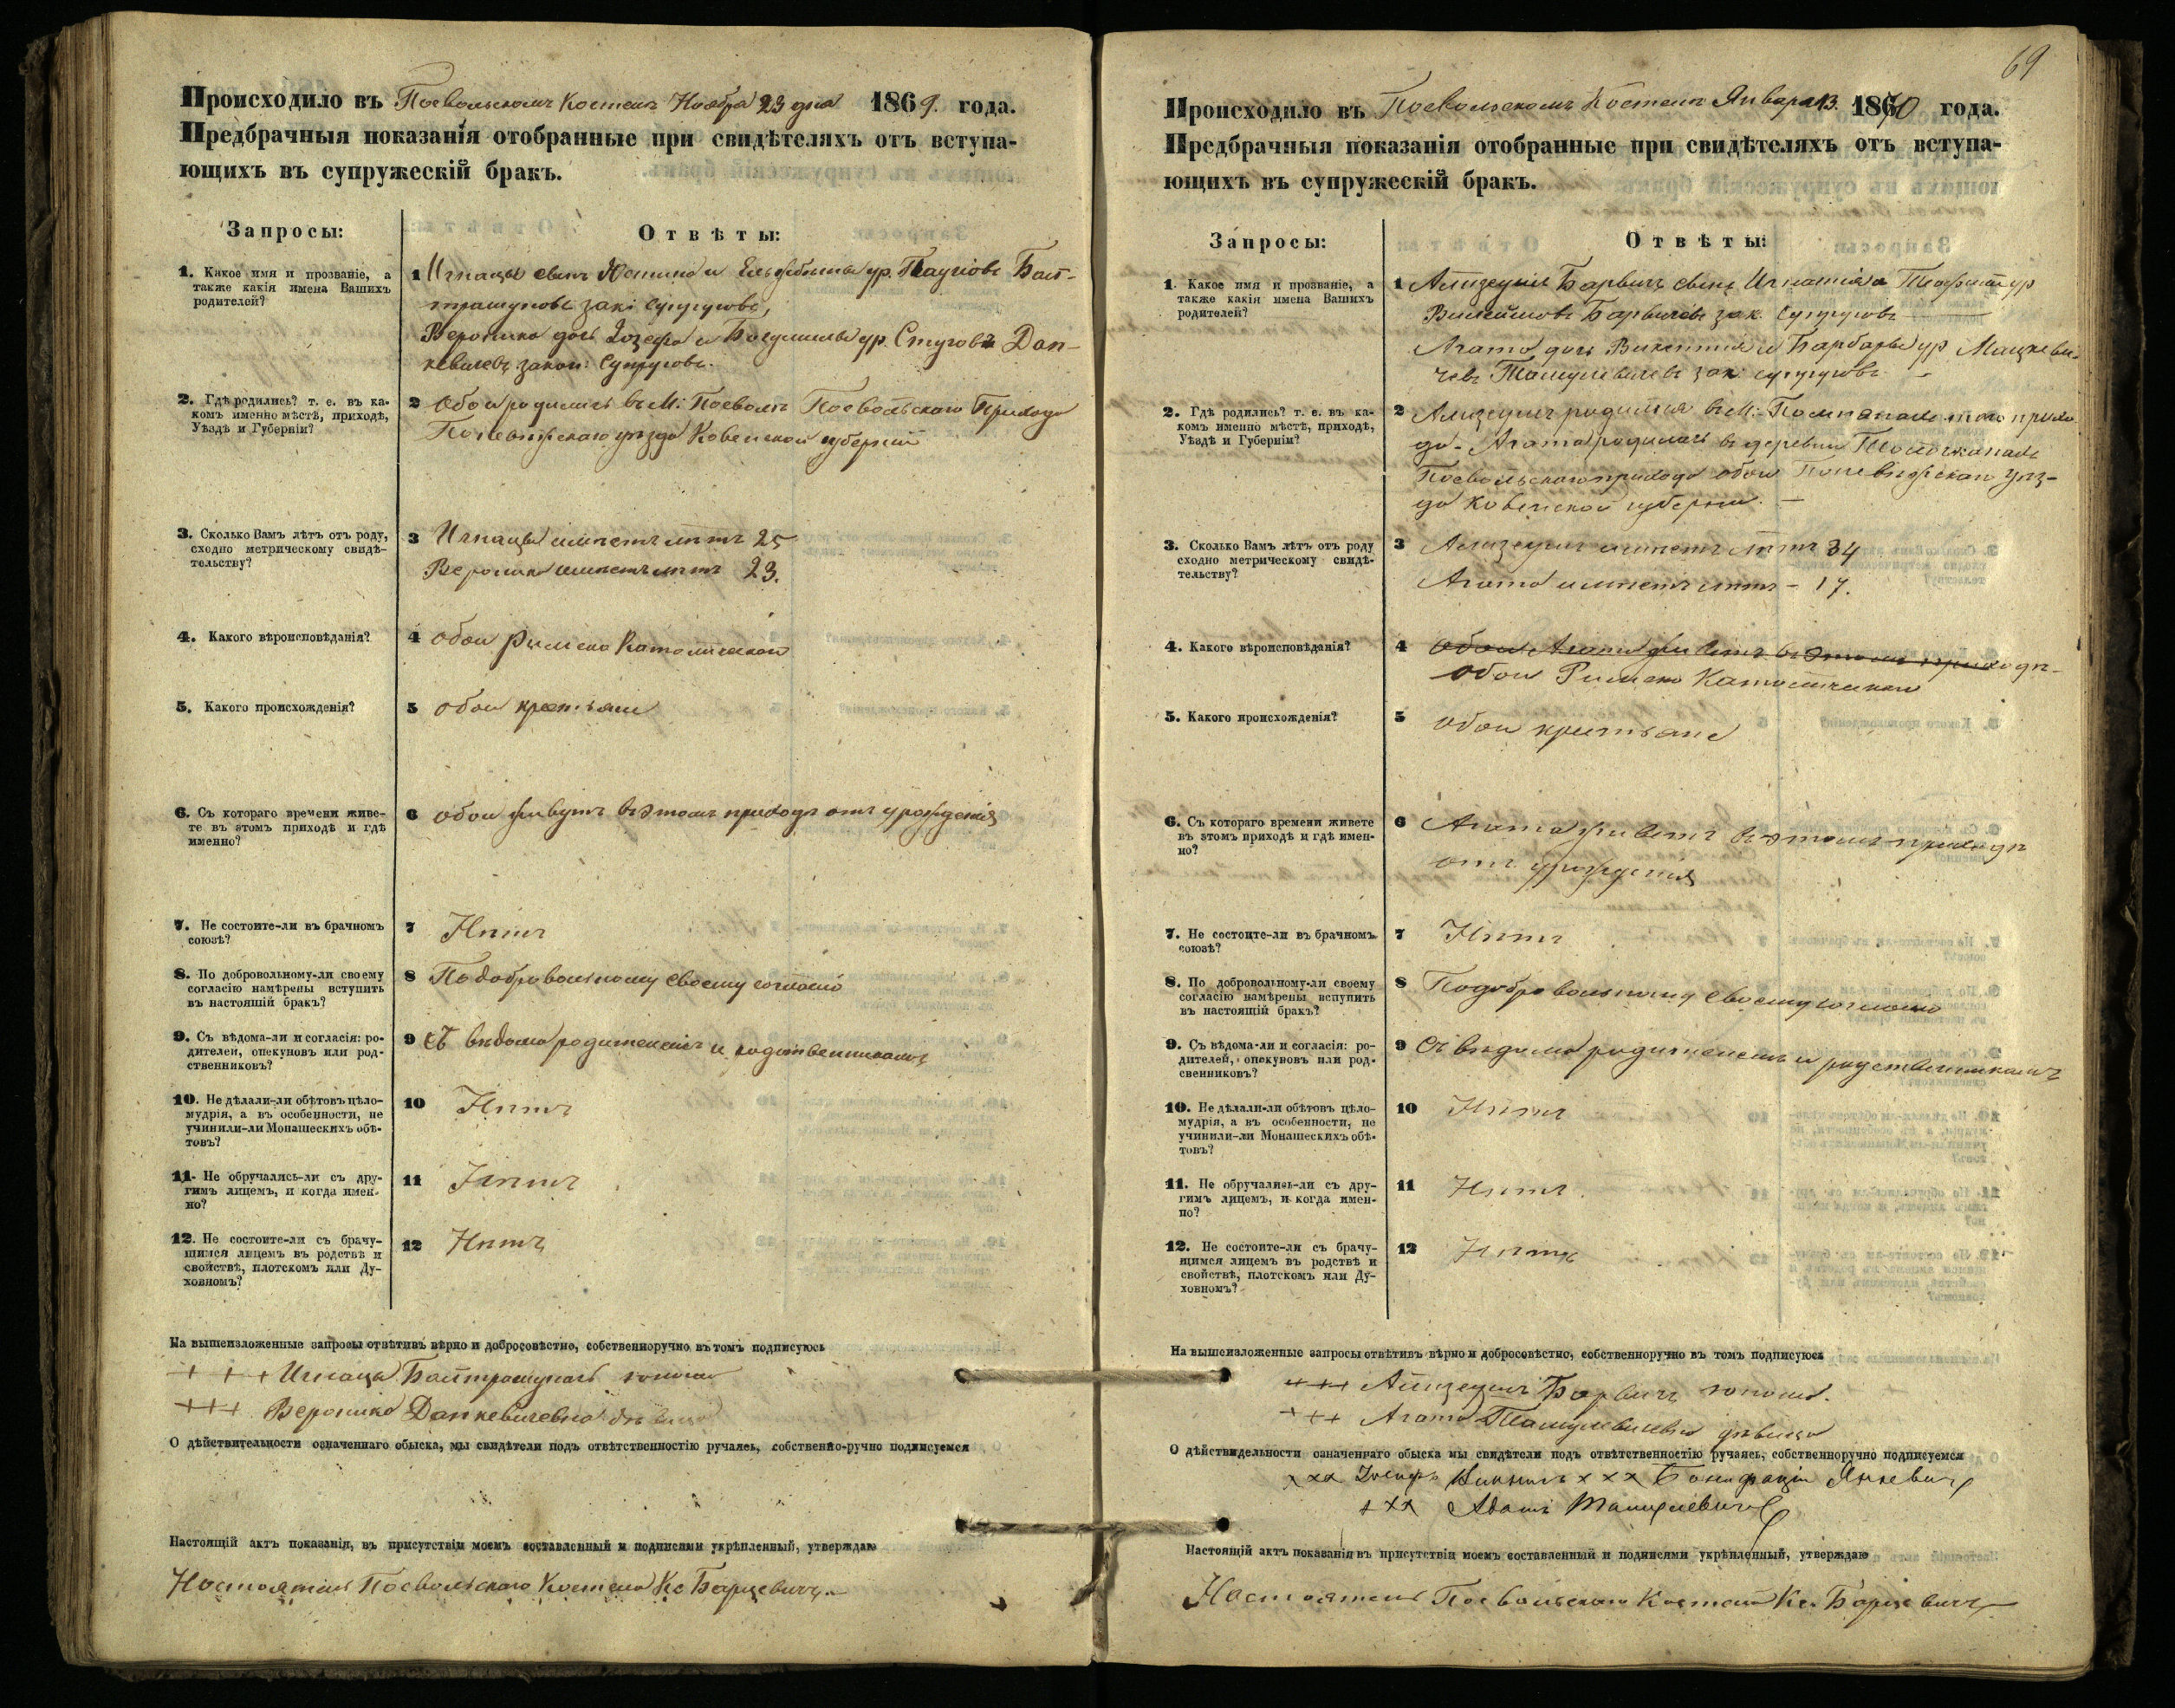 Происходило въ Поевольскомъ Костелѣ Ноября 23 дня 1869. года.
Предбрачныя показанія отобранные при свидѣтеляхъ отъ вступа-
ющихъ въ супружескій бракъ.
Запросы:
Отвѣты:
1. Какое имя и прозваніе, а
также какія имена Вашихъ
родителей?
1 Игнацы сынъ
закі супруговъ,
Вероника дочь Іозефа и Богумилы ур. Дан-
кевичевъ закон: Супруговъ.
2. Гдѣ родились? т. е. въ ка-
комъ именно мѣстѣ, приходѣ,
Уѣздѣ и Губерніи?
2 Обои родились въ М: Поеволѣ Поевольскаго Прихода
Поневѣжскаго уѣзда Ковенской губерніи
3. Сколько Вамъ лѣтъ отъ роду,
сходно метрическому свидѣ-
тельству?
3 Игнацы имѣетъ лѣтъ 25
Вероника имѣетъ лѣтъ 23.
4. Какого вѣроисповѣданія?
4 обои Римско Католической
5. Какого происхожденія?
5 обои крестьяне
6. Съ котораго времени живе-
те въ этомъ приходѣ и гдѣ
именно?
6 обои живутъ въ этомъ приходѣ отъ урожденія
7. Не состоите-ли въ брачномъ
союзѣ?
7 Нѣтъ
8. По добровольному-ли своему
согласію намѣрены вступить
въ настоящій бракъ?
8 По добровольному своему согласію
9. Съ вѣдома-ли и согласія: ро-
дителей, опекуновъ или род-
ственниковъ?
9 Съ вѣдома родителемъ и родственникамъ
10. Не дѣлали-ли обѣтовъ цѣло-
мудрія, а въ особенности, не
учинили-ли Монашескихъ обѣ-
товъ?
10 Нѣтъ
11. Не обручались-ли съ дру-
гимъ лицемъ, и когда имен-
но?
11 Нѣтъ
12. Не состоите-ли съ брачу-
щимся лицемъ въ родствѣ и
свойствѣ, плотскомъ или Ду-
ховномъ?
12 Нѣтъ
На вышеизложенные запросы отвѣтивъ вѣрно и добросовѣстно, собственноручно въ томъ подписуюсь
+ + + Игнацы
+++ Вероника Данкевичевна дѣвица
О дѣйствительности означеннаго обыска, мы свидѣтели подъ отвѣтственностію ручаясь, собственно-ручно подписуемся
Настоящій актъ показанія, въ присутствіи моемъ составленный и подписями укрѣпленный, утверждаю
Настоятель Поевольскаго Костела Кс Барцевичъ
69
Происходило въ Поевольскомъ Костелѣ Января 13. 1870 года.
Предбрачныя показанія отобранные при свидѣтеляхъ отъ вступа-
ющихъ въ супружескій бракъ.
Запросы:
Отвѣты:
1. Какое имя и прозваніе, а
также какія имена Вашихъ
родителей?
1 Барвичъ сынъ Игнатія и ур
Барвичовъ зак. Супруговъ
Агата дочь Викентія и Барбары ур Мацкеви-
чевъ зак. супруговъ
2. Гдѣ родились? т. е. въ ка-
комъ именно мѣстѣ, приходѣ,
Уѣздѣ и Губерніи?
2 родился въ М: того прихо
да - Агата родилась въ деревни
Поевольскаго прихода обои Поневѣжскаго Уѣз-
да Ковенской губерніи. -
3. Сколько Вамъ лѣтъ отъ роду
сходно метрическому свидѣ-
тельству?
3 имѣетъ лѣтъ 34
Агата имѣетъ лѣтъ - 17.
4. Какого вѣроисповѣданія?
4 обои Агата живетъ въ этомъ приходѣ-
обои Римско Католической
5. Какого происхожденія?
5 обои крестьяне
6. Съ котораго времени живете
въ этомъ приходѣ и гдѣ имен-
но?
6 Агата живетъ въ этомъ приходѣ
отъ урожденія
7. Не состоите-ли въ брачномъ
союзѣ?
7 Нѣтъ
8. По добровольному-ли своему
согласію намѣрены вспупить
въ настоящій бракъ?
8 По добровольному своему согласію
9. Съ вѣдома-ли и согласія: ро-
дителей, опекуновъ или род-
свенниковъ?
9 Съ вѣдома родителемъ и родственникамъ
10. Не дѣлали-ли обѣтовъ цѣло-
мудрія, а въ особенности, не
учинили-ли Монашескихъ обѣ-
товъ?
10 Нѣтъ
11. Не обручались-ли съ дру-
гимъ лицемъ, и когда имен-
но?
11 Нѣтъ
12. Не состоите-ли съ брачу-
щимся лицемъ въ родствѣ и
свойствѣ, плотскомъ или Ду-
ховномъ?
12 Нѣтъ
На вышеизложенные запросы отвѣтивъ вѣрно и добросовѣстно, собственноручно въ томъ подписуюсь
+++ Барвичъ
+++ Агата дѣвица
О дѣйствидельности означеннаго обыска мы свидѣтели подъ отвѣтственностію ручаясь, собственноручно подписуемся
xxx xxx Бонифацій Янкевичъ
+xx Адамъ
Настоящій актъ показанія въ присутствіи моемъ составленный и подписями укрѣпленный, утверждаю
Настоятель Поевольскаго Костела Кс. Барцевичъ